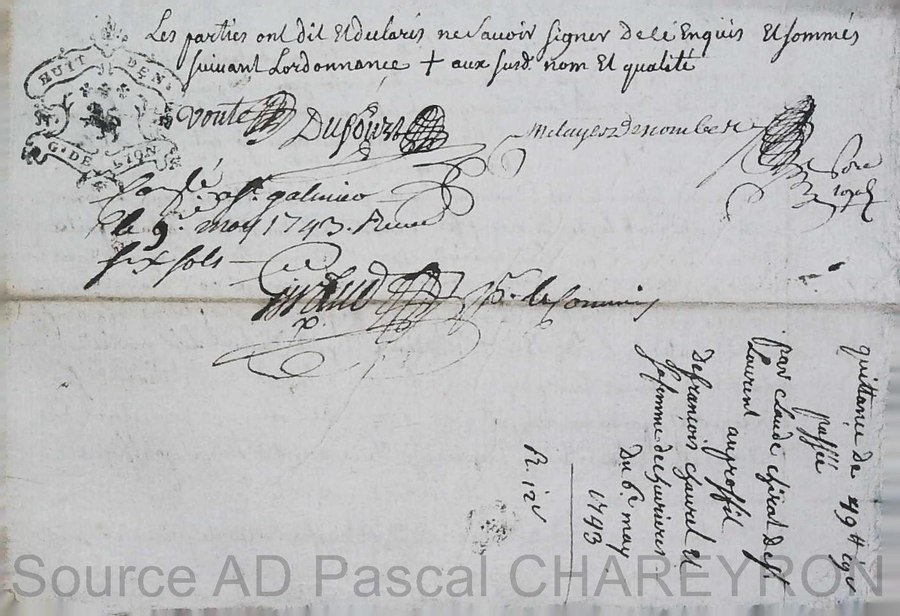 Les parties ont dit Et declaré ne Savoir Signer de ce Enquis Et sommés
suivant Lordonnance + aux susd. nom Et qualité
HUIT DEN.
G. DE LION
Voute
Dufour
metayer denombere
Conlé a St. galmier
le 9e. may 1743. Receu
six sols
Giraud
quittance de 49 tt
passée
par claude chirat de St
Laurent au proffit
De françois chaurel Et
sa femme
Du 6e. may
1743
Source AD Pascal CHAREYRON